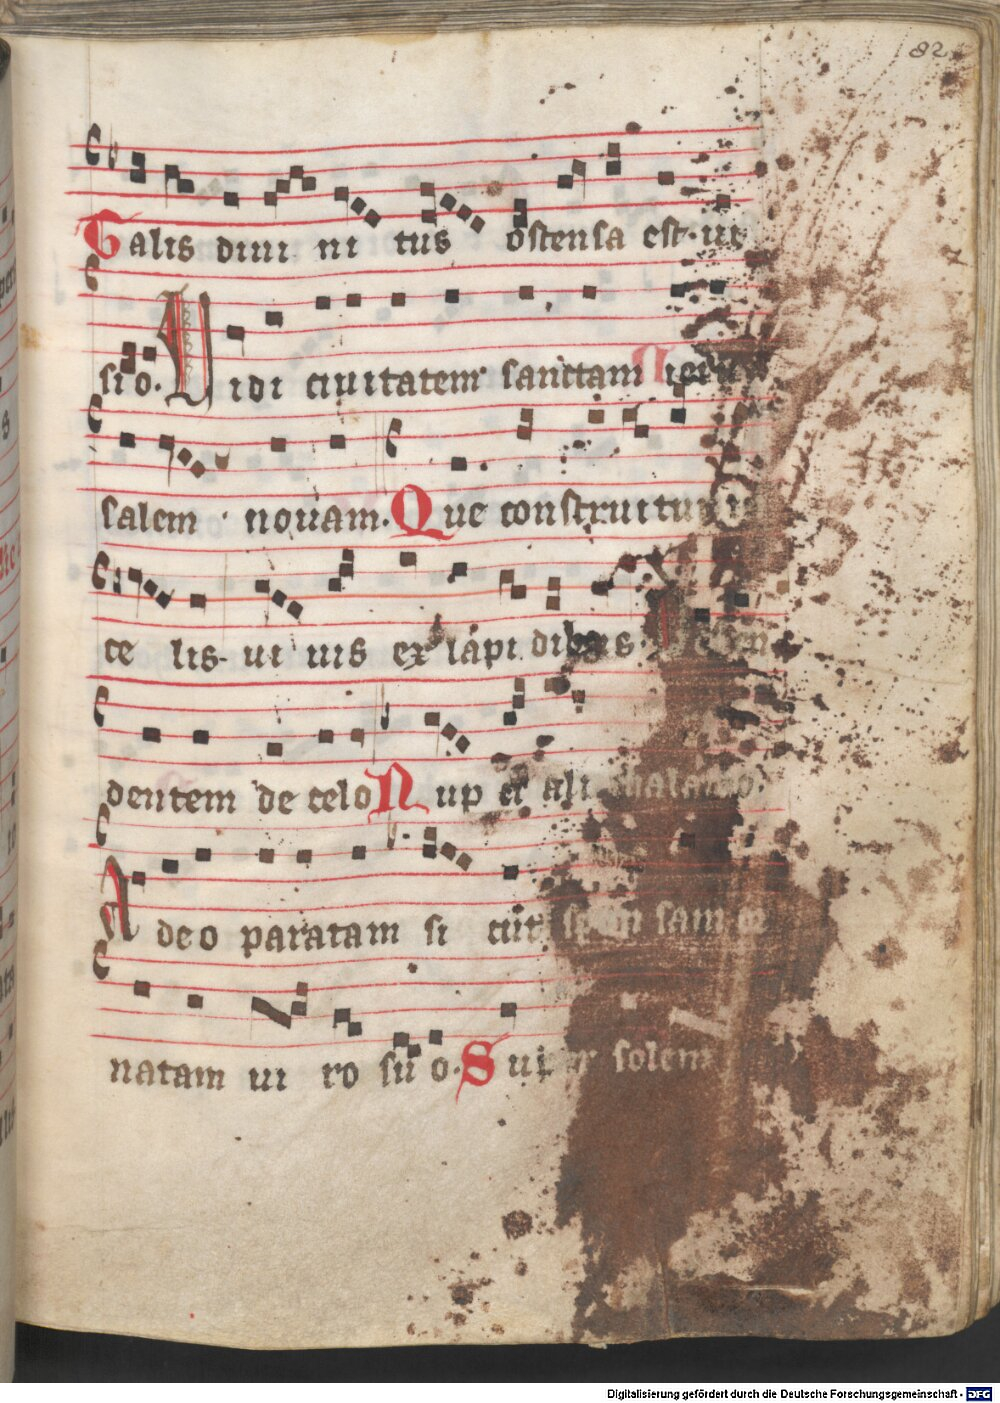 82
Talis diui ni tus ostensa est ui
sio. Uidi ciuitatem sanctam ieru
salem nouam. Que construitur in
ce lis ui uis ex lapi dibus.
dentem de celo Nup ci ali thalamo.
A deo paratam si cut sam or
natam ui ro su o. Super solem
Digitalisierung gefördert durch die Deutsche Forschungsgemeinschaft - DFG